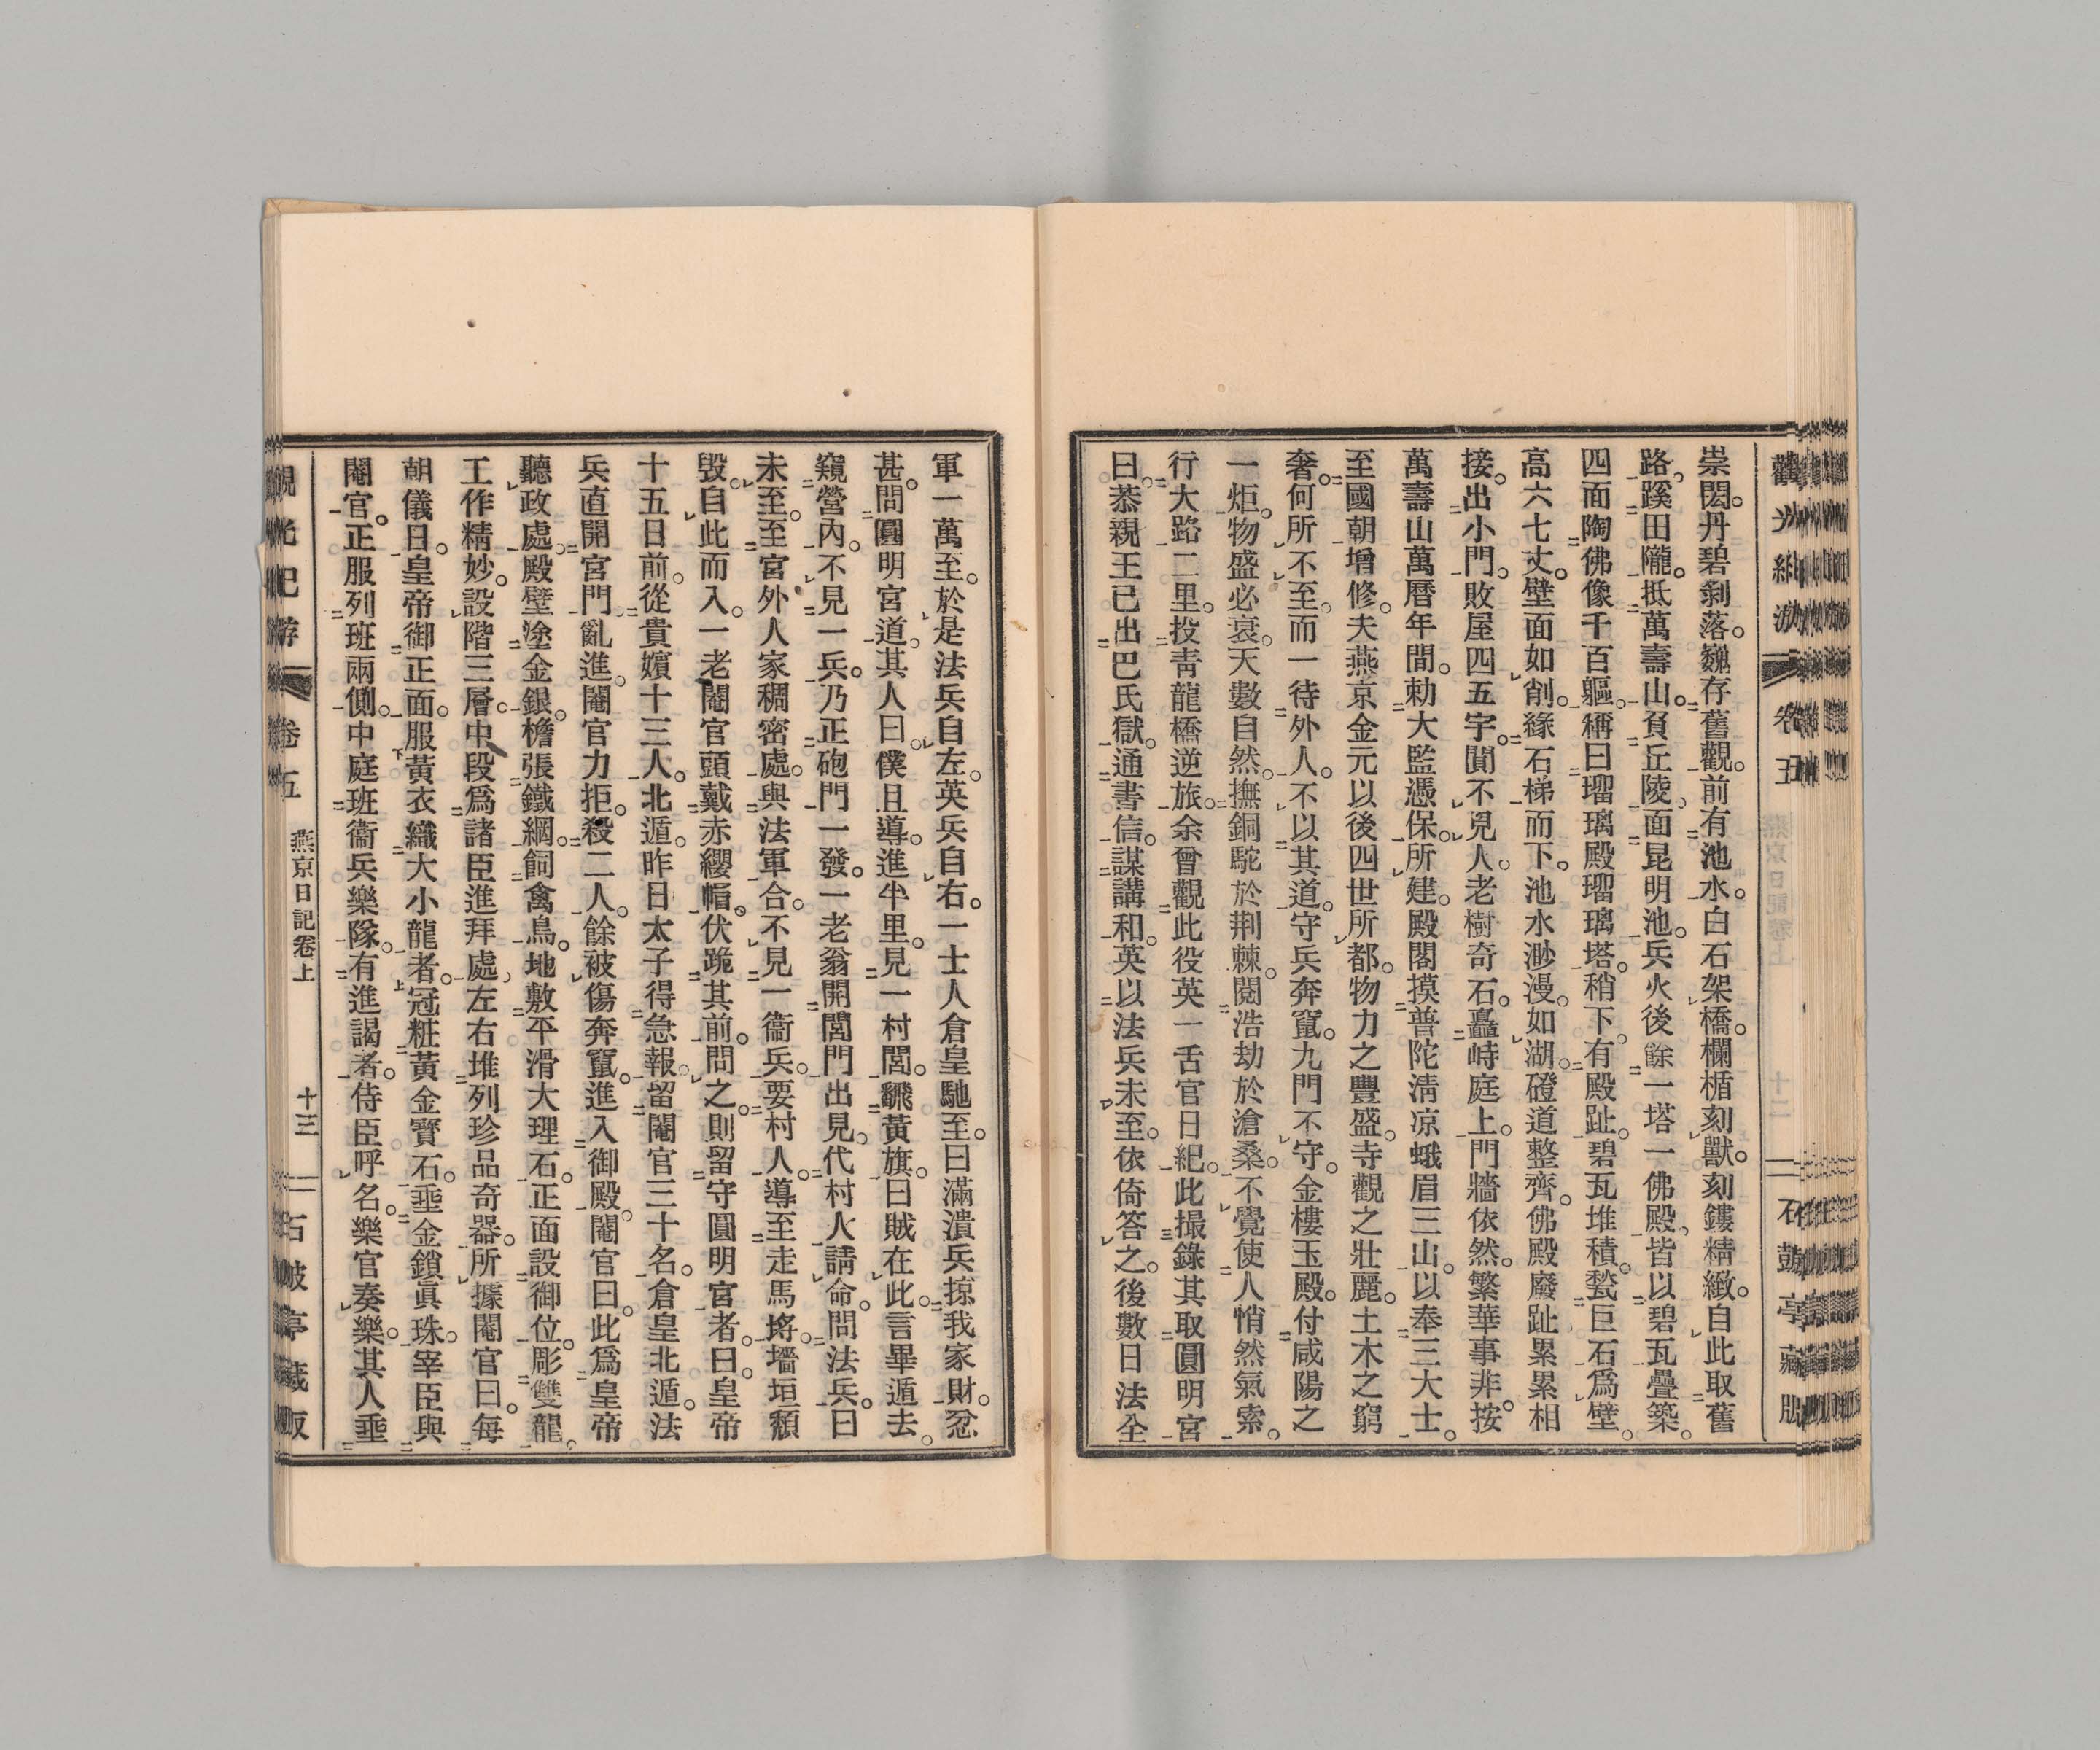 崇閎。丹碧剝落。巍存舊觀。前有池水。白石架橋。欄楯刻獸。刻鏤精緻。自此取舊
路。蹊田隴。抵萬壽山。負丘陵。面昆明池。兵火後餘一塔一佛殿。皆以碧瓦疊築。
四面陶佛像千百軀。稱曰瑠璃殿瑠璃塔。稍下。有殿趾。碧瓦堆積。甃巨石爲壁。
高六七丈。壁面如削。緣石梯而下。池水渺漫。如湖。磴道整齊。佛殿廢趾累累相
接。出小門。敗屋四五宇。闃不見人。老樹奇石。矗峙庭上。門牆依然。繁華事非。按
萬壽山萬曆年間。勅大監馮保。所建。殿閣摸普陀淸凉蛾眉三山。以奉三大士。
至國朝增修。夫燕京金元以後四世所都。物力之豐盛。寺觀之壯麗。土木之窮
奢。何所不至。而一待外人。不以其道。守兵奔竄。九門不守。金樓玉殿。付咸陽之
一炬。物盛必衰。天數自然。撫銅駝於荆棘。閱浩劫於滄桑。不覺使人悄然氣索。
行大路二里。投靑龍橋逆旅。余曾觀此役英一舌官日紀。此撮錄其取圓明宮
曰。恭親王已出巴氏獄。通書信。謀講和。英以法兵未至。依倚答之。後數日法全
軍一萬至。於是法兵自左。英兵自右。一士人倉皇馳至。曰滿潰兵掠我家財。忿
甚。問圓明宮道。其人曰。僕且導。進半里。見一村閭。飜黃旗。曰賊在此。言畢遁去。
窺營內。不見一兵。乃正砲門一發。一老翁開閭門出見。代村人請命。問法兵。曰
未至。至宮外人家稠密處。與法軍合。不見一衞兵。要村人。導至走馬埓。墻垣頽
毀。自此而入。一老閹官頭戴赤纓帽。伏跪其前。問之。則留守圓明官者。曰。皇帝
十五日前。從貴嬪十三人。北遁。昨日太子得急報。留閹官三十名。倉皇北遁。法
兵直開宮門。亂進。閹官力拒。殺二人。餘被傷奔竄。進入御殿。閹官曰。此爲皇帝
聽政處。殿壁塗金銀。檐張鐵綱。飼禽鳥。地敷平滑大理石。正面設御位。彫雙龍。
工作精妙。設階三層。中段爲諸臣進拜處。左右堆列珍品奇器。所據閹官曰。每
朝儀日。皇帝御正面。服黃衣織大小龍者。冠粧黃金寶石。垂金鎖眞珠。宰臣與
閹官。正服列班兩側。中庭班衞兵樂隊。有進謁者。侍臣呼名。樂官奏樂。其人垂
觀光紀游 卷五 燕京日記卷上 十三